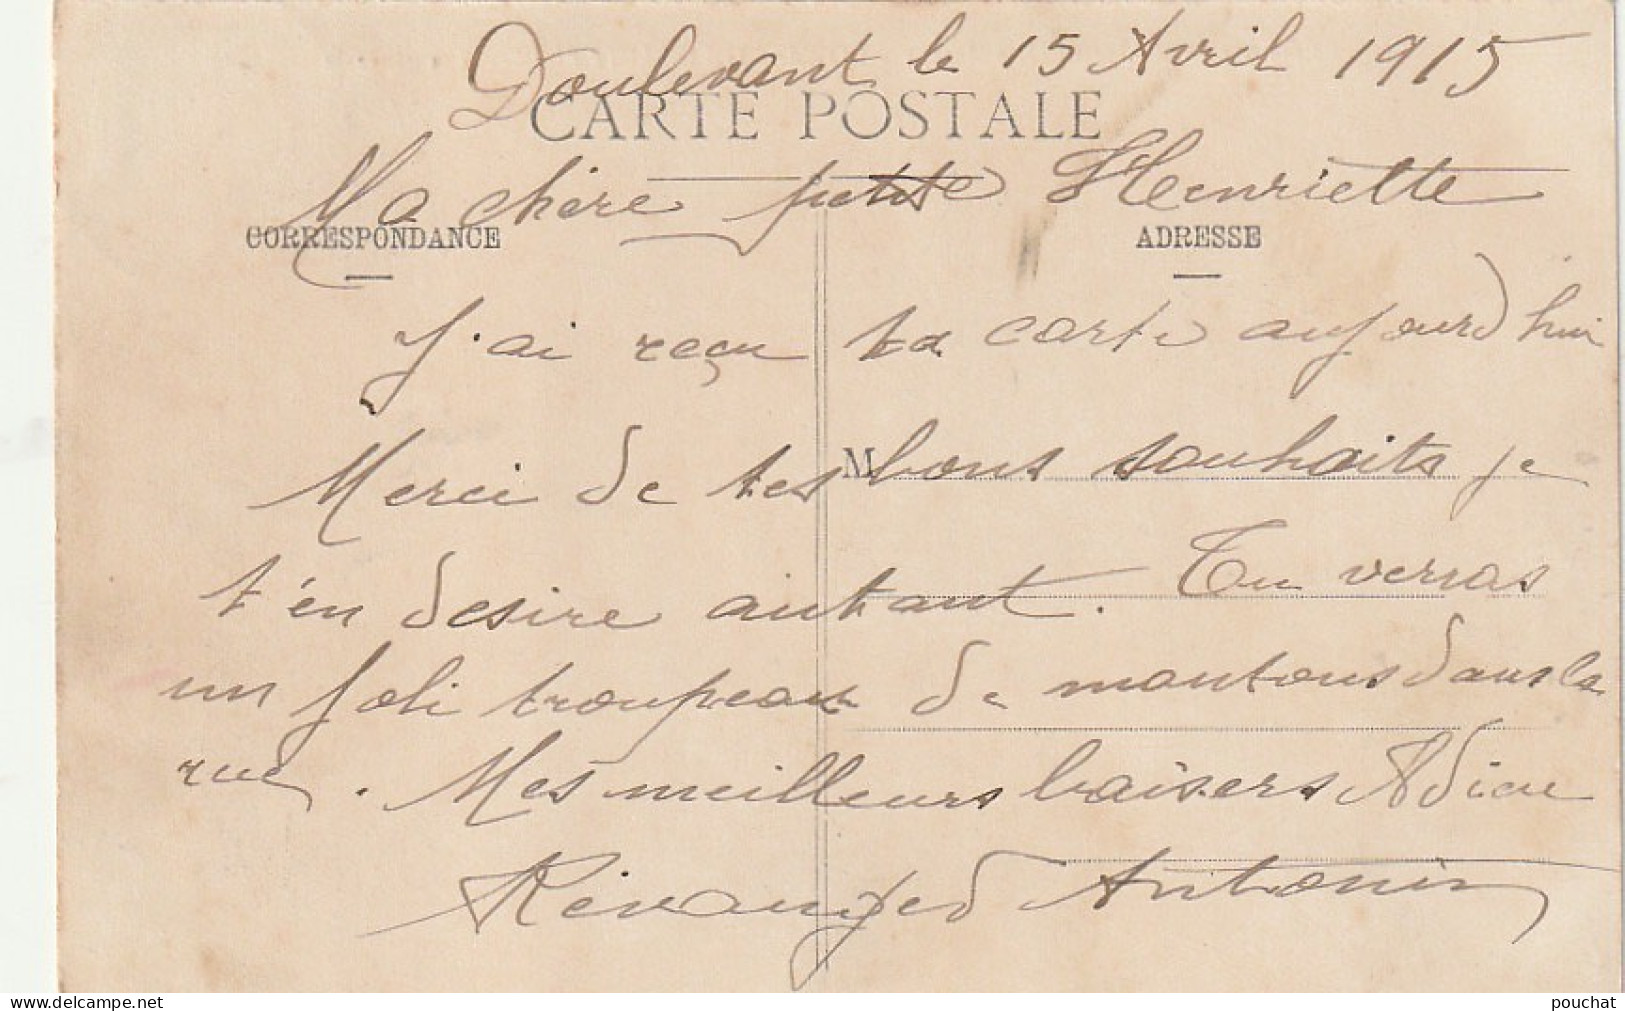 Doulevant le 15 Avril 1915
CARTE POSTALE
Ma chère petite Henriette
CORRESPONDANCE
ADRESSE
J'ai reçu ta carte aujourd hui
Merci de tes bons souhaits je
M
t'en desire autant. Tu verras
un joli troupeau de moutons dans la
rue. Mes meilleurs baisers Adieu
Antonin
www.delcampe.net
pouchat